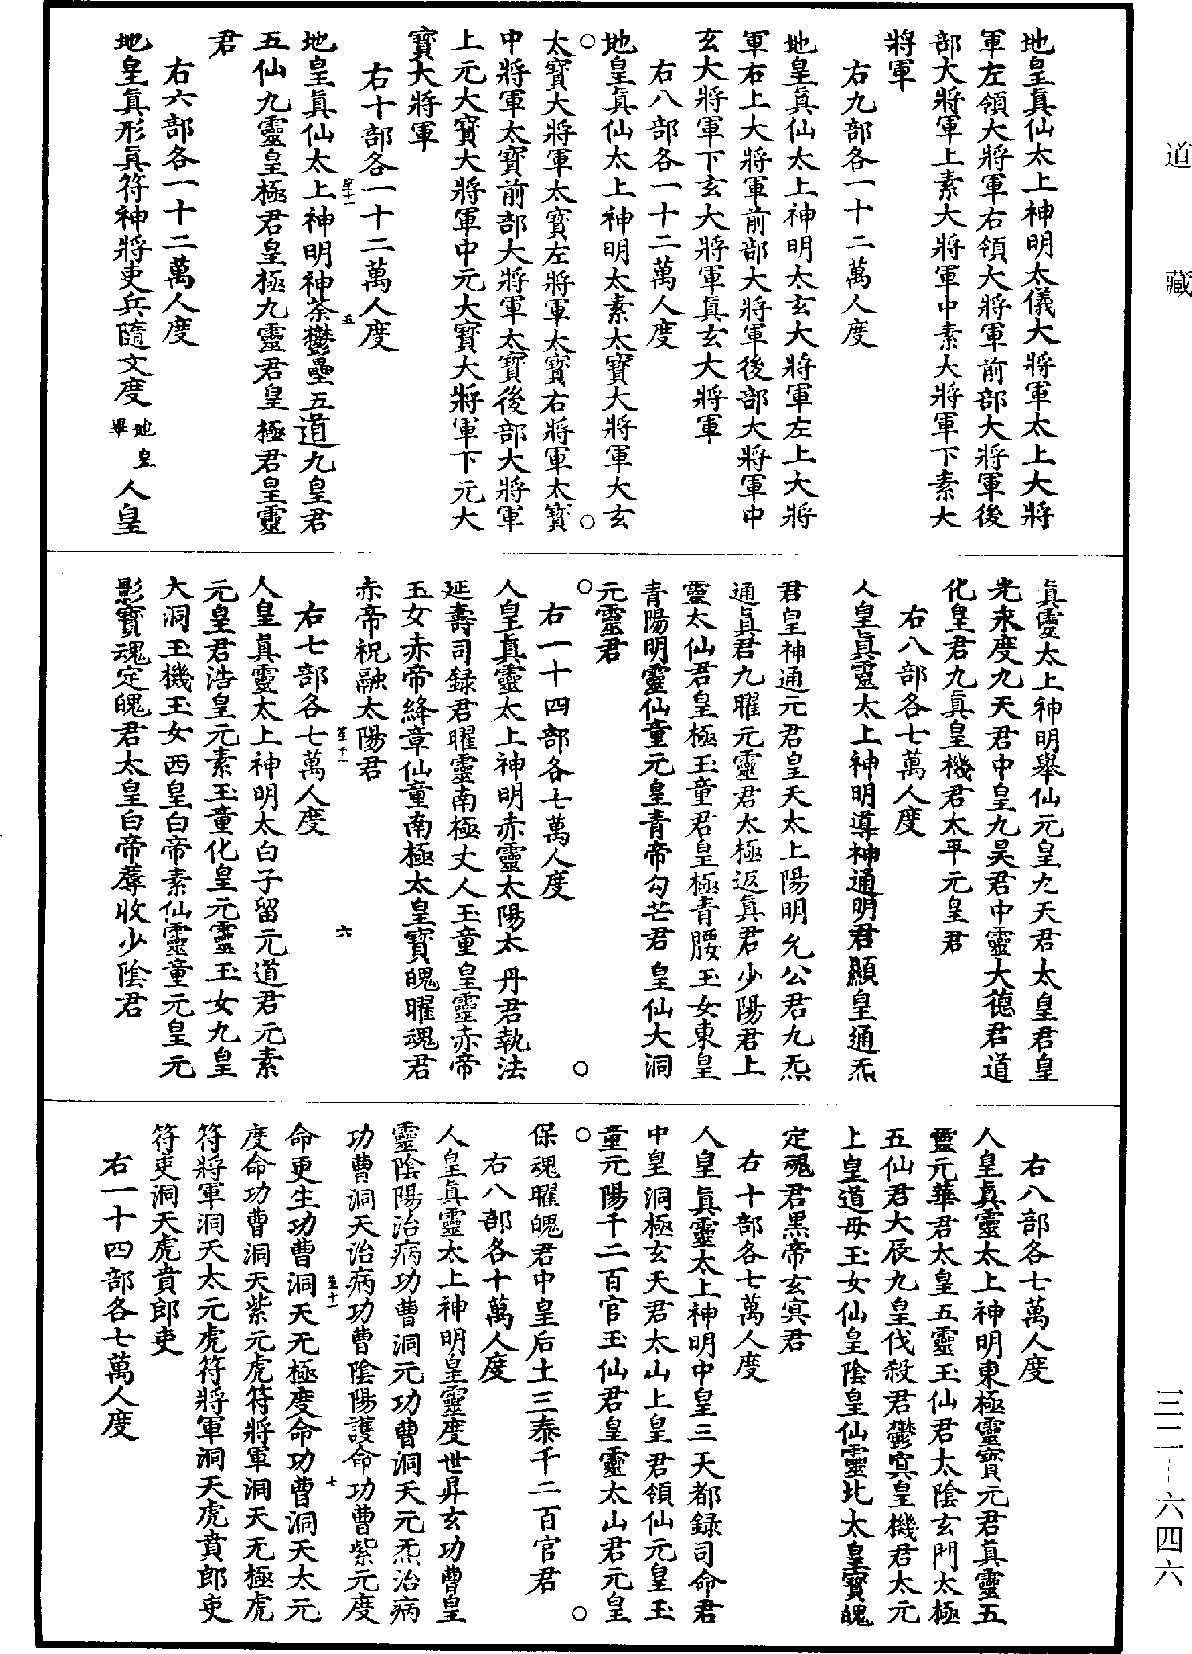 道藏
地皇真仙太上神明太儀大將軍太上大將
軍左領大將軍右領大將軍前部大將軍後
部大將軍上素大將軍中素大將軍下素大
將軍
右九部各一十二萬人度
地皇真仙太上神明太玄大將軍左上大將
軍右上大將軍前部大將軍後部大將軍中
玄大將軍下玄大將軍真玄大將軍
右八部各一十二萬人度
地皇真仙太上神明太素太寶大將軍大玄
太寶大將軍太寶左將軍太寶右將軍太寶
中將軍太寶前部大將軍太寶後部大將軍
上元大寶大將軍中元大寶大將軍下元大
寶大將軍
右十部各一十二萬人度
地皇真仙太上神明神荼鬱壘五道九皇君
五仙九靈皇極君皇極九靈君皇極君皇靈
君
右六部各一十二萬人度
地皇真形真符神將吏兵隨文度地皇畢人皇
真靈太上神明舉仙元皇九天君太皇君皇
先來度九天君中皇九吴君中靈大德君道
化皇君九真皇機君太平元皇君
右八部各七萬人度
人皇真靈太上神明導神通明君顯皇通炁
君皇神通元君皇天太上陽明允公君九炁
通真君九曜元靈君太極返真君少陽君上
靈太仙君皇極玉童君皇極青腰玉女東皇
青陽明靈仙童元皇青帝勾芒君皇仙大洞
元靈君
右一十四部各七萬人度
人皇真靈太上神明赤靈太陽太丹君執法
延壽司録君曜靈南極丈人玉童皇靈赤帝
玉女赤帝絳章仙童南極太皇寶魄曜魂君
赤帝祝融太陽君
右七部各七萬人度
人皇真靈太上神明太白子留元道君元素
元皇君浩皇元素玉童化皇元靈玉女九皇
大洞玉機玉女西皇白帝素仙靈童元皇元
影寶魂定魄君太皇白帝蓐收少陰君
右八部各七萬人度
人皇真靈太上神明東極靈寶元君真靈五
靈元華君太皇五靈玉仙君太陰玄門太極
五仙君大辰九皇伐殺君鬱寘皇機君太元
上皇道母玉女仙皇陰皇仙靈北太皇寶魄
定魂君黑帝玄冥君
右十部各七萬人度
人皇真靈太上神明中皇三天都録司命君
中皇洞極玄天君太山上皇君領仙元皇玉
童元陽千二百官玉仙君皇靈太山君元皇
保魂曜魄君中皇后土三泰千二百官君
右八部各十萬人度
人皇真靈太上神明皇靈度世昇玄功曹皇
靈陰陽治病功曹洞元功曹洞天元炁治病
功曹洞天治病功曹陰陽護命功曹紫元度
命更生功曹洞天无極度命功曹洞天太元
度命功曹洞天紫元虎符將軍洞天无極虎
符將軍洞天太元虎符將軍洞天虎賁郎吏
符吏洞天虎賁郎吏
右一十四部各七萬人度
三二-六四六